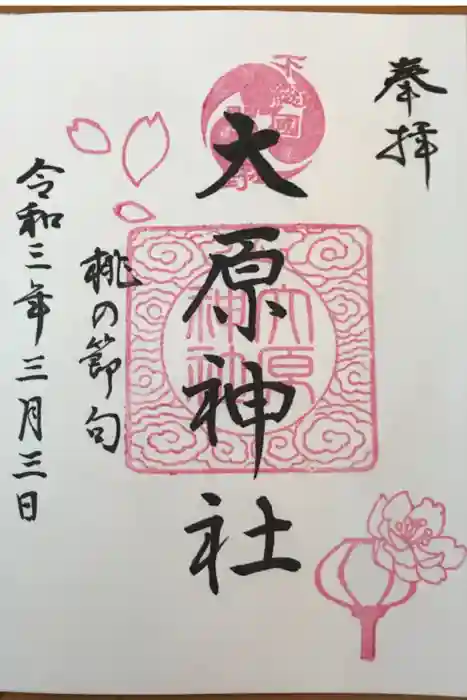 奉拝
大原神社
大原
神社
桃の節句
令和三年三月三日